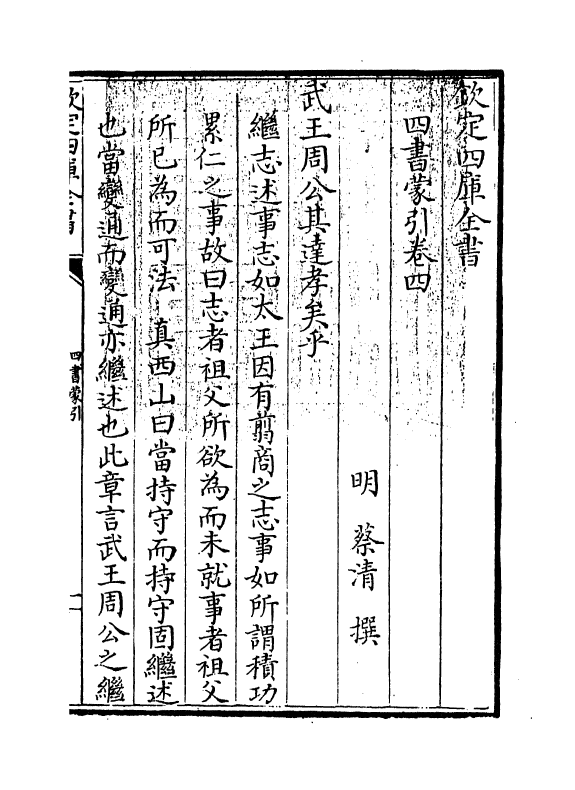 欽定四庫全書
四書蒙引卷四
明 蔡清 撰
武王周公其達孝矣乎
繼志述事志如太王因有翦商之志事如所謂積功
累仁之事故曰志者祖父所欲為而未就事者祖父
所已為而可法 真西山曰當持守而持守固繼述
也當變通而變通亦繼述也此章言武王周公之繼
欽定四庫全書
四書蒙引